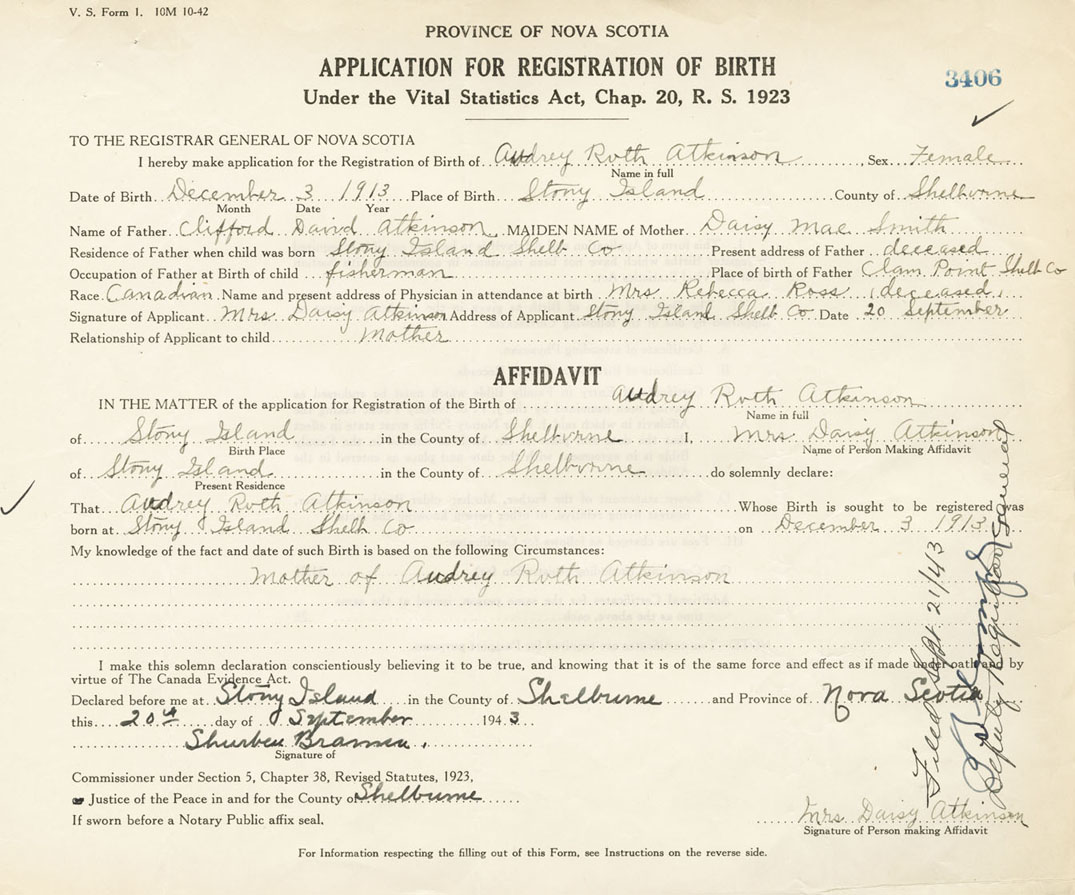 V. S. Form 1. 10M 10-42
PROVINCE OF NOVA SCOTIA
APPLICATION FOR REGISTRATION OF BIRTH
3406
Under the Vital Statistics Act, Chap. 20, R. S. 1923
TO THE REGISTRAR GENERAL OF NOVA SCOTIA
I hereby make application for the Registration of Birth of Audrey Ruth Atkinson, Sex Female
Name in full
Date of Birth December 3 1913 Place of Birth Stony Island County of Shelburne
Month Date Year
Name of Father Clifford David Atkinson, MAIDEN NAME of Mother Daisy Mae Smith
Residence of Father when child was born Stony Island Shelb Co Present address of Father deceased
Occupation of Father at Birth of child fisherman Place of birth of Father Clam Point Shelb Co
Race Canadian Name and present address of Physician in attendance at birth Mrs. Rebecca Ross (deceased)
Signature of Applicant Mrs Daisy Atkinson Address of Applicant Stony Island Shelb Co Date 20 September
Relationship of Applicant to child Mother
AFFIDAVIT
IN THE MATTER of the application for Registration of the Birth of Audrey Ruth Atkinson
Name in full
of Stony Island in the County of Shelburne I, Mrs Daisy Atkinson
Birth Place Name of Person Making Affidavit
of Stony Island in the County of Shelburne do solemnly declare:
Present Residence
That Audrey Ruth Atkinson Whose Birth is sought to be registered was
born at Stony Island Shelb Co on December 3 1913
My knowledge of the fact and date of such Birth is based on the following Circumstances:
Mother of Audrey Ruth Atkinson
I make this solemn declaration conscientiously believing it to be true, and knowing that it is of the same force and effect as if made under oath and by
virtue of The Canada Evidence Act.
Declared before me at Stony Island in the County of Shelburne and Province of Nova Scotia
this 20th day of September 1943
Signature of
Commissioner under Section 5, Chapter 38, Revised Statutes, 1923,
or Justice of the Peace in and for the County of Shelburne
If sworn before a Notary Public affix seal.
Mrs Daisy Atkinson
Signature of Person making Affidavit
For Information respecting the filling out of this Form, see Instructions on the reverse side.
Filed Sept. 21/43
Deputy Registrar General